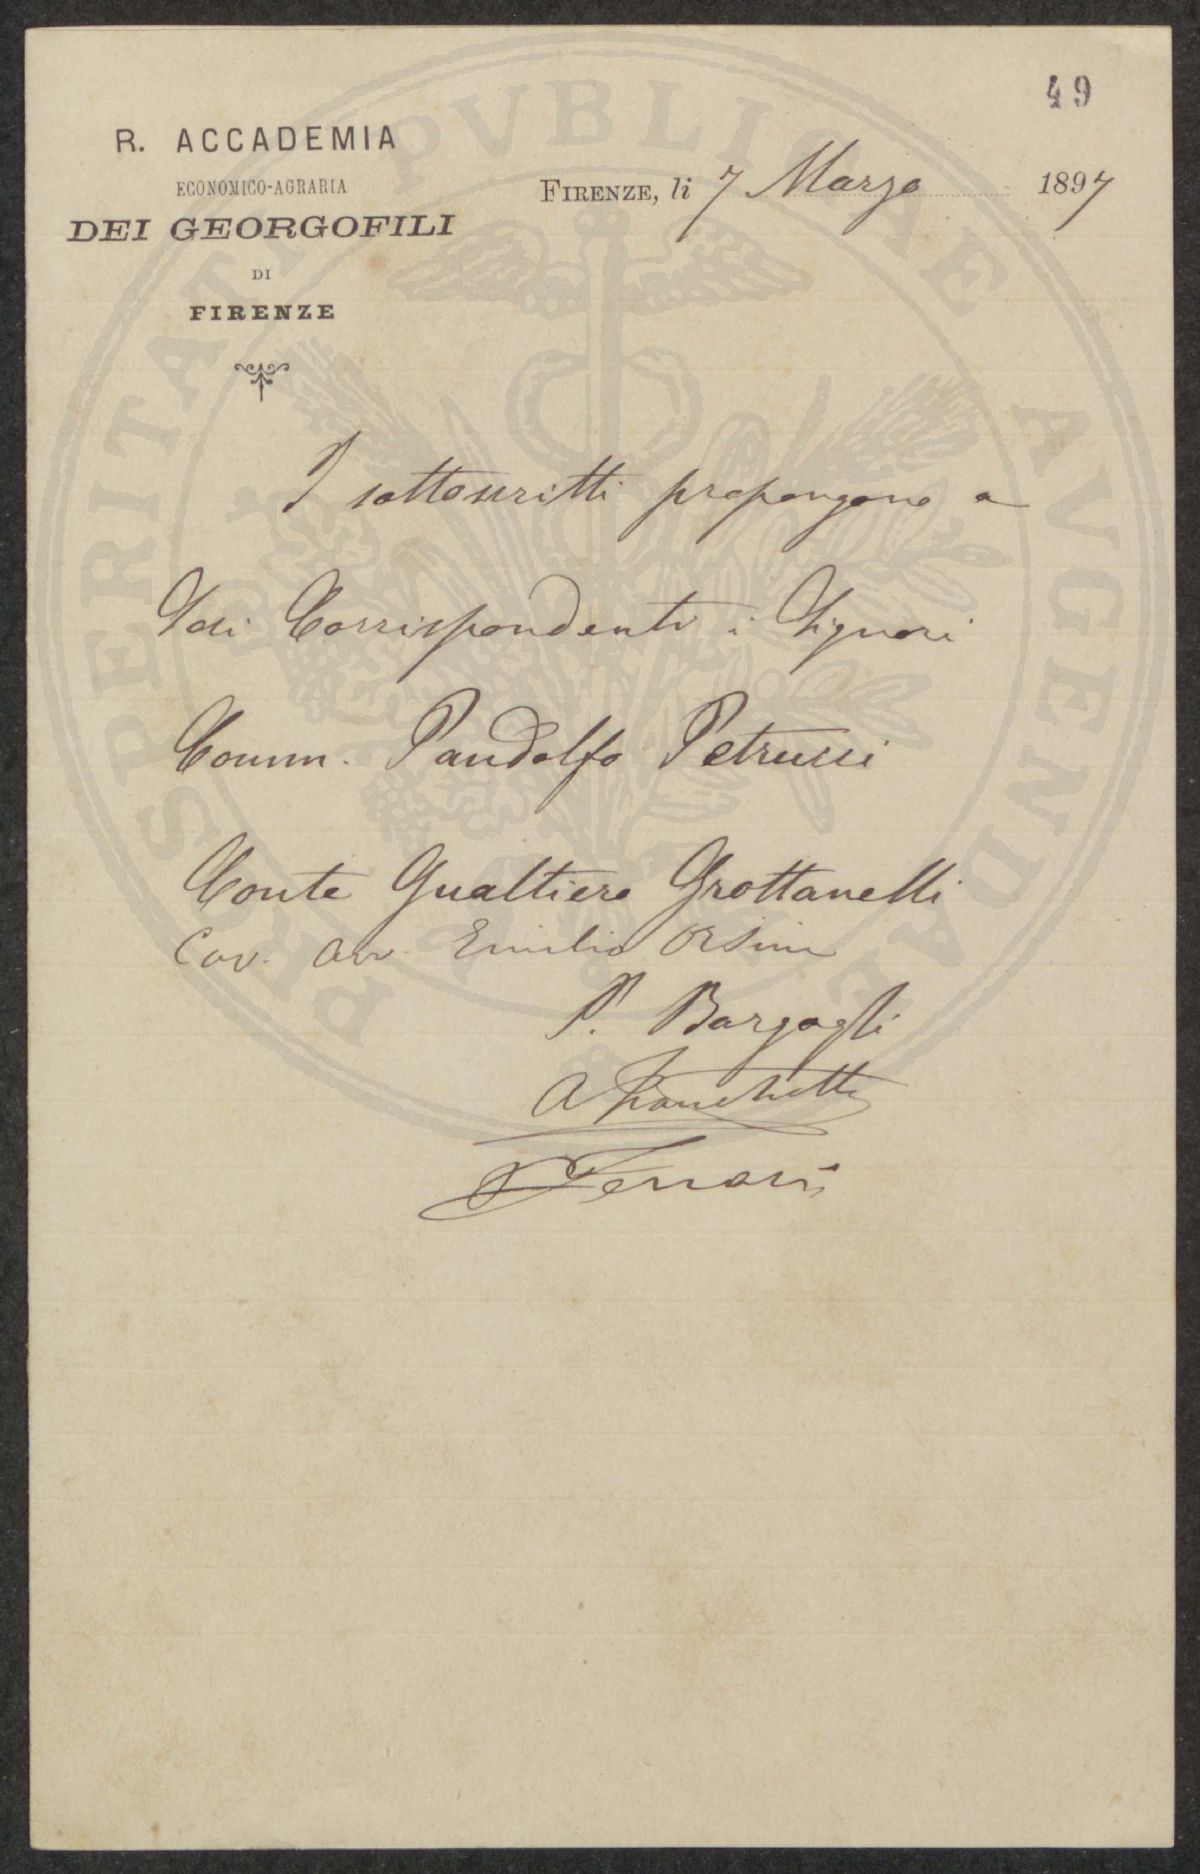 49
R. ACCADEMIA
ECONOMICO-AGRARIA
DEI GEORGOFILI
DI
FIRENZE
FIRENZE, li 7 Marzo 1897
I sottoscritti propongono a
Soci Corrispondenti i Signori
Comm. Pandolfo Petrucci
Conte Gualtiero Grottanelli
Cav. Avv. Emilio Orsini
P. Bargagli
A Franchetti
Ferrari
PROSPERITATI PVBLICAE AVGENDAE